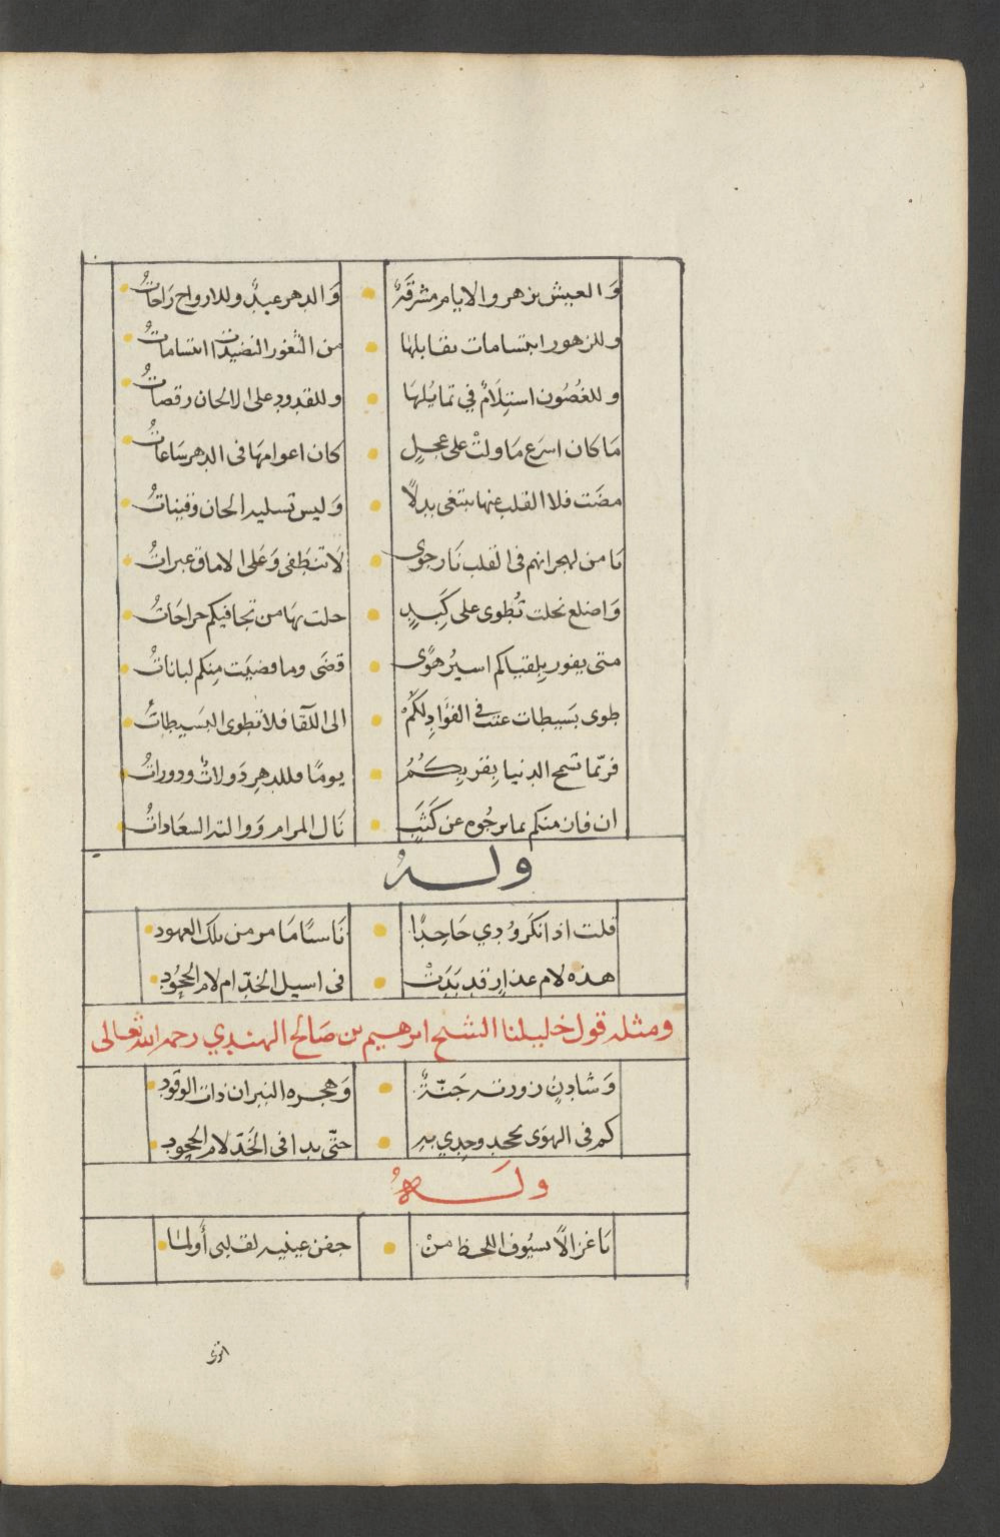 وَالعيش يزهر والايام مشرقةٌ وَالدهر عيدٌ وللارواح رَاحاتُ
وللزهور ابتسامات تقابلها من الثغور النضيدات ابتساماتُ
وللغُصُون استِلَامٌ في تمايُلهَا وللقدود على الالحان رقصاتُ
مَا كان اسرَع مَا ولتْ على عجلٍ كان اعوامهَا فى الدهر سَاعاتُ
مضَت فلا القلب عنها يبتغى بدلًا وَليس تسليه الحان وقيناتُ
يَا من لهجرانهم فى القلب نَار جوى لَا تنطَفى وَعَلى الاماق عبراتُ
وَاضلع نحلت تُطوى على كَبِدٍ حلت بهَا من تجافيكم جراحَاتُ
متى يفوز بِلقياكم اسيرُ هوًى قضَى وما قضيَت مِنكم لباناتُ
طوى بَسيطات عنت في الفؤَادِ لكُمْ الى اللقَا فلا تطوى البَسيطاتُ
فربّما تسمح الدنيا بِقربِكُمُ يومًا فللدهرِ دَولاتٌ ودوراتُ
ان فاز منكم بما يرجُوه عن كَثَبٍ نَال المرام وَوالته السعَاداتُ
ولهُ
قلت اذ انكر وُدي جَاحِدًا نَاسيًا مَا مر من تلك العهود
هذه لام عذارٍ قد بَدَتْ فى اسيل الخدّ ام لام الجحُود
ومثله قول خليلنا الشيخ ابرهيم بن صَالح الهندي رحمه الله تعالى
وَشادنٍ زورته جَنّةٌ وَهجره النيران ذات الوقود
كم فى الهوَى يجحد وجدي بهِ حتّى بدا فى الخَدّ لام الجحود
ولَهُ
يَا غزالًا بسيُوف اللحظ منْ جفن عينيه لقلبى أَولما